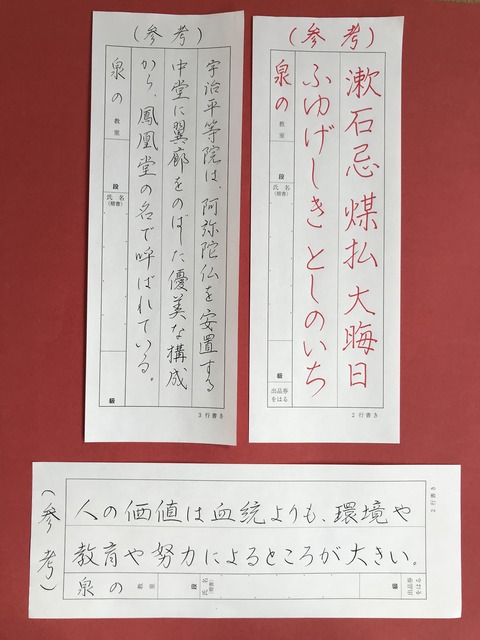 （参考）
宇治平等院は、阿弥陀仏を安置する
中堂に翼廊をのばした優美な構成
から、鳳凰堂の名で呼ばれている。
泉の
教室
段
氏名
（楷書）
級
3行書き
（参考）
漱石忌 煤払 大晦日
ふゆげしき としのいち
泉の
教室
段
氏名
（楷書）
級
出品券
をはる
2行書き
（参考）
人の価値は血統よりも、環境や
教育や努力によるところが大きい。
泉の
教室
段
氏名
（楷書）
級
出品券
をはる
2行書き